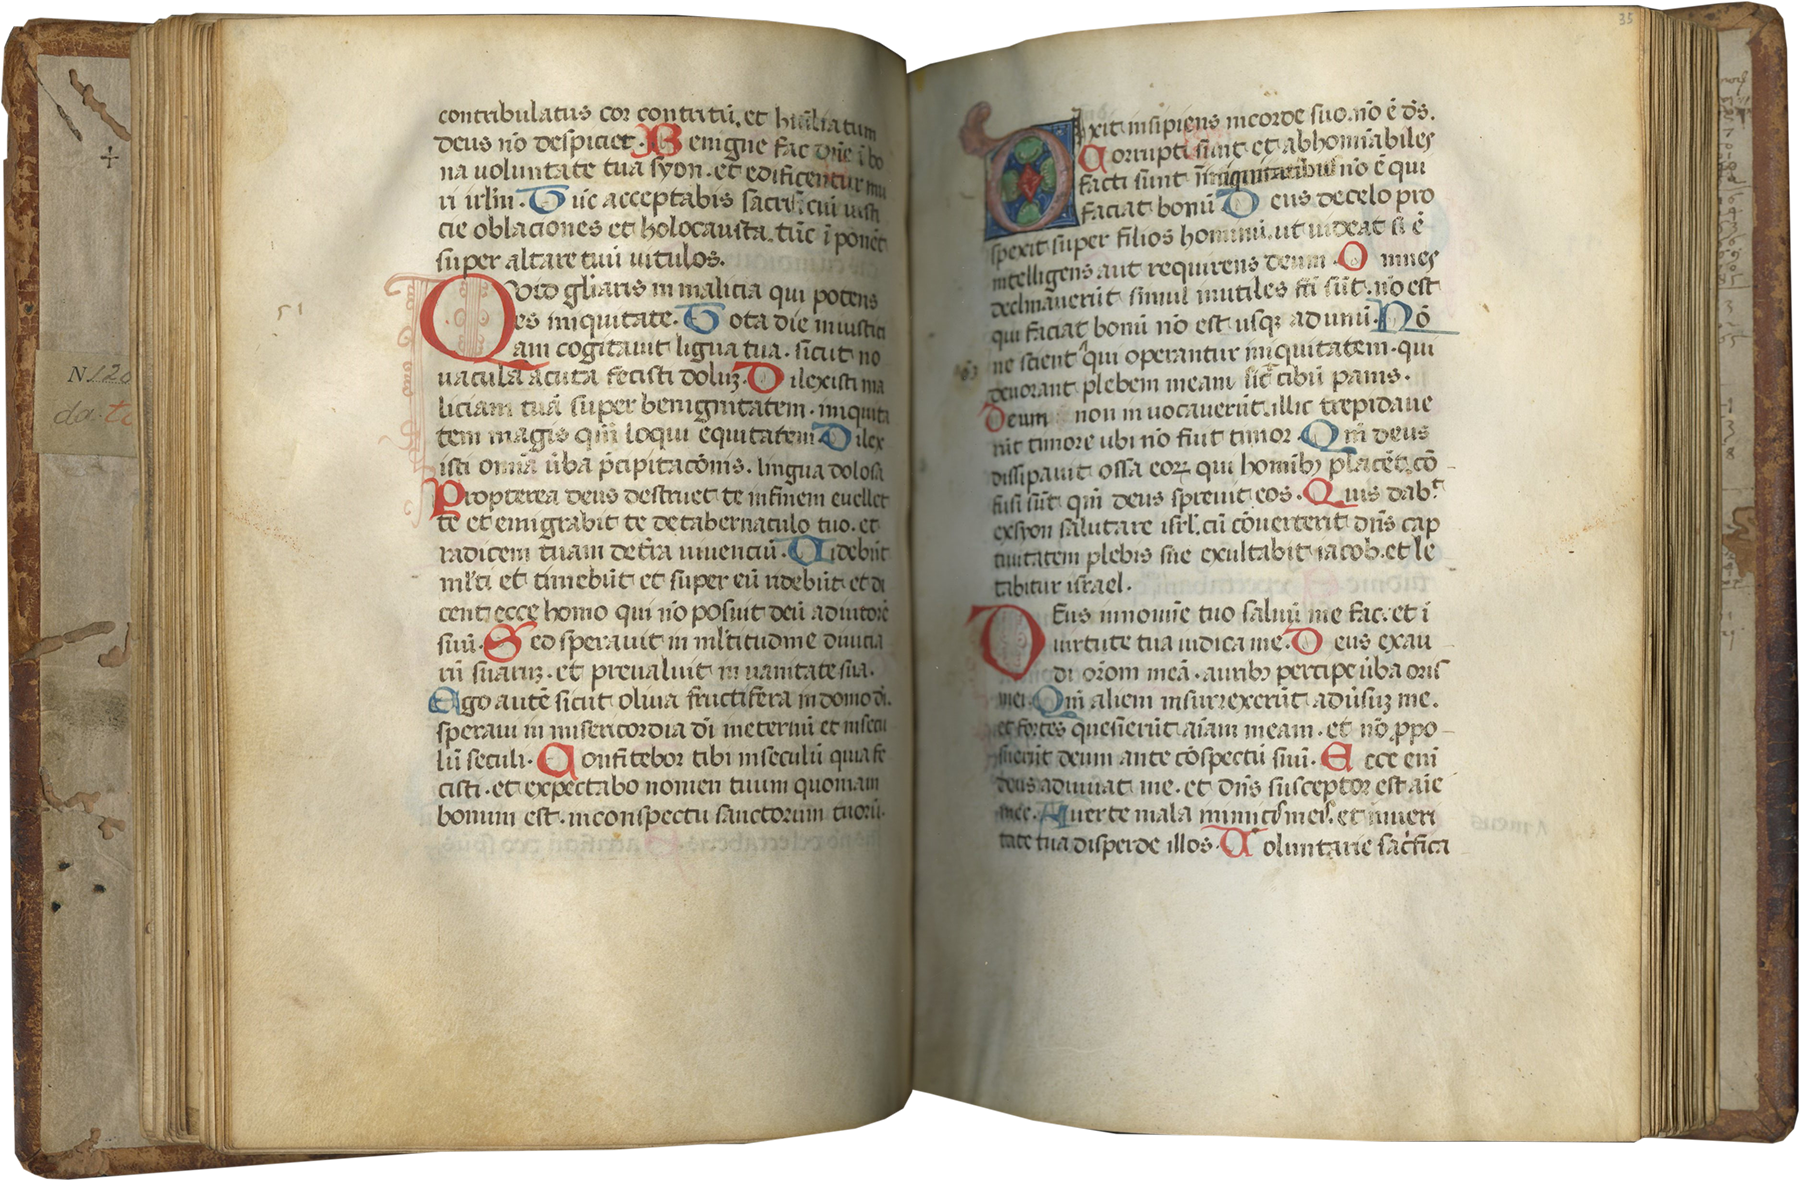 contribulatus cor contritū. et huīliatum
deus nō despiciet. Benigne fac dn̄e ī bo
na voluntate tua syon. et edificentur mu
ri irlm̄. Tūc acceptabis sacrī
cie oblaciones et holocausta. tūc ī ponēt
super altare tuū vitulos.
Quid gl̄iaris in malicia qui potens
es iniquitate. Tota die iniusticī
am cogitauit ligua tua. sicut no
uacula acuta fecisti dolūꝫ. Dilexisti ma
liciam tuā super benignitatem. iniquita
tem magis qm̄ loqui equitatem Dilex
isti om̄ia ūba p̄cipitacōnis. lingua dolosa
Propterea deus destruet te infinem euellet
te et emigrabit te detabernaculo tuo. et
radicem tuam det̄ra uiuenciū. Videbūt
ml̄ti et timebūt et super eū ridebūt et di
cent ecce homo qui nō posiut deū adiutorē
suū. Sed sperauit in ml̄titudine diuicia
rū suaruꝫ. et preualuit in uanitate sua.
Ego autē sicut oliua fructifera in domo dī.
speraui in misericordia dī ineternū et insecu
lū seculi. Confitebor tibi inseculū quia fe
cisti. et expectabo nomen tuum quoniam
bonum est. inconspectu sanctorum tuorū.
51
35
Dixit insipiens incorde suo. nō ē dʼs.
Corrupti sunt et abhominabiles
facti sunt in iniquitatibus nō ē qui
faciat bonū Deus decelo pro
spexit super filios hominū. ut uideat si ē
intelligens aut requirens deum. Omnes
declinauerūt simul inutiles fc̄i sūt. nō est
qui faciat bonū nō est usqꝫ adunū. Nō
ne scient qui operantur iniquitatem. qui
deuorant plebem meam sic̄ cibū panis.
Deum non inuocauerūt. illic trepidaue
rūt timore ubi nō fiut timor. Qm̄ deus
dissipauit ossa eorꝝ qui hominibꝫ placēt. cō
fusi sūt qm̄ deus spreuit eos. Quis dabᵗ
exsyon salutare isrl̄. cū cōuerterit dn̄s cap
tiuitatem plebis sue exultabit iacob. et le
tabitur israel.
Deus innomīe tuo saluū me fac. et ī
uirtute tua iudica me. Deus exau
di orōom meā. auribꝫ percipe ūba oris
mei. Qm̄ alieni insurrexerūt adūsuꝫ me.
et fortes quesierūt aīam meam. et nō ꝓpo
suerūt deum ante cōspectū suū. Ecce enī
deus adiuuat me. et dn̄s susceptor est aīe
mee. Auerte mala inimicis meis. et inueri
tate tua disperde illos. Voluntarie sacrifica
N 120